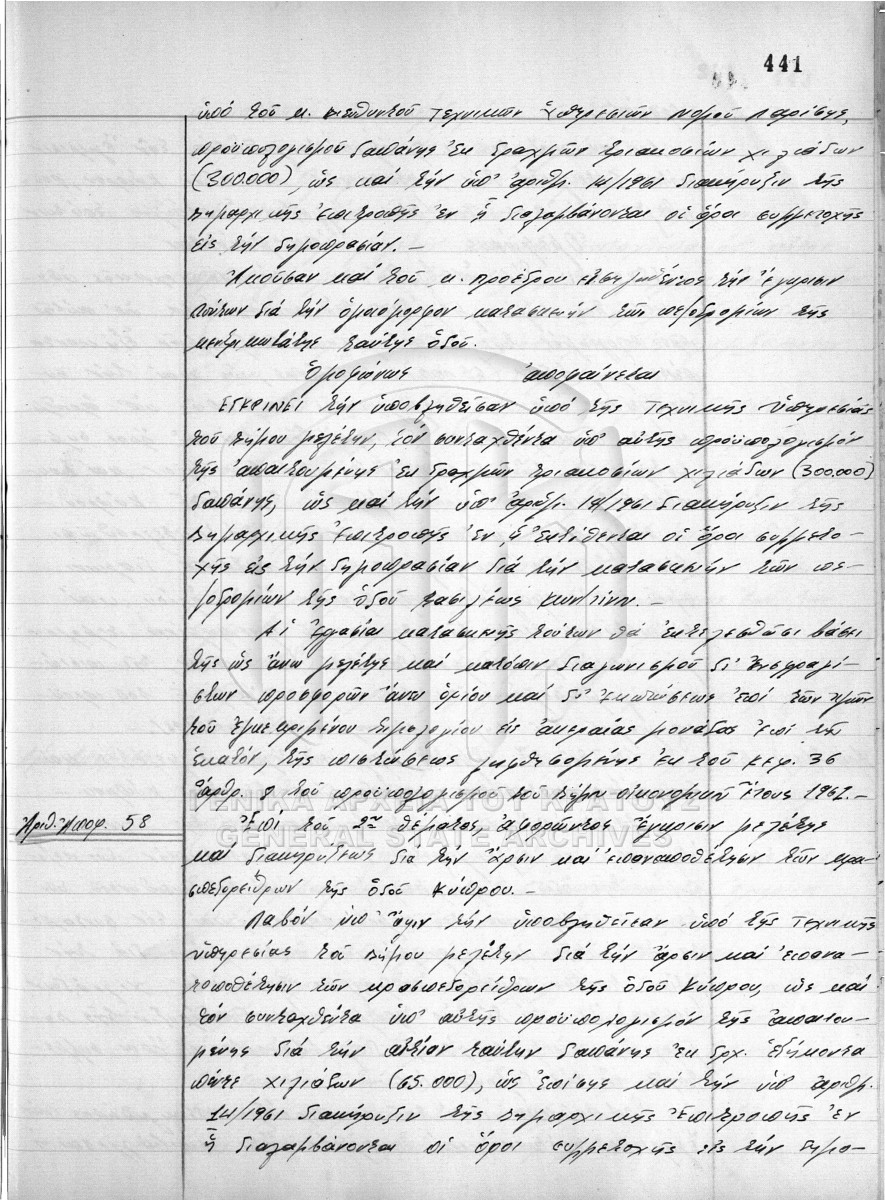 441
ὑπό τοῦ κ. Διευθυντοῦ Τεχνικῶν Ὑπηρεσιῶν Νομοῦ Λαρίσης,
προϋπολογισμοῦ δαπάνης ἐκ δραχμῶν τριακοσίων χιλιάδων
(300.000), ὡς καί τήν ὑπ' ἀριθμ. 14/1961 διακήρυξιν τῆς
Δημαρχικῆς Ἐπιτροπῆς ἐν ᾗ διαλαμβάνονται οἱ ὅροι συμμετοχῆς
εἰς τήν δημοπρασίαν.-
Ἀκοῦσαν καί τοῦ κ. Προέδρου εἰσηγηθέντος τήν ἔγκρισιν
τούτων διά τήν ὁμοιόμορφον κατασκευήν τῶν πεζοδρομίων τῆς
κεντρικωτάτης ταύτης ὁδοῦ.
Ὁμοφώνως ἀποφαίνεται
ΕΓΚΡΙΝΕΙ τήν ὑποβληθεῖσαν ὑπό τῆς Τεχνικῆς Ὑπηρεσίας
τοῦ Δήμου μελέτην, τόν συνταχθέντα ὑπ' αὐτῆς προϋπολογισμόν
τῆς ἀπαιτουμένης ἐκ δραχμῶν τριακοσίων χιλιάδων (300.000)
δαπάνης, ὡς καί τήν ὑπ' ἀριθμ. 14/1961 διακήρυξιν τῆς
Δημαρχικῆς Ἐπιτροπῆς ἐν ᾗ ἐκτίθενται οἱ ὅροι συμμετο-
χῆς εἰς τήν δημοπρασίαν διά τήν κατασκευήν τῶν πε-
ζοδρομίων τῆς ὁδοῦ Βασιλέως Κων/τίνου.-
Αἱ ἐργασίαι κατασκευῆς τούτων θά ἐκτελεσθῶσι βάσει
τῆς ὡς ἄνω μελέτης καί κατόπιν διαγωνισμοῦ δι' ἐνσφραγί-
στων προσφορῶν ἄνευ ὁρίου καί δι' ἐκπτώσεως ἐπί τῶν τιμῶν
τοῦ ἐγκεκριμένου τιμολογίου εἰς ἀκεραίας μονάδας ἐπί τοῖς
ἑκατόν, τῆς πιστώσεως ληφθησομένης ἐκ τοῦ κεφ. 36
ἄρθρ. 9 τοῦ προϋπολογισμοῦ τοῦ Δήμου οἰκονομικοῦ ἔτους 1961.-
ΓΕΝΙΚΑ ΑΡΧΕΙΑ ΤΟΥ ΚΡΑΤΟΥΣ
Ἀριθ. Ἀποφ. 58
Ἐπί τοῦ 2ου θέματος, ἀφορῶντος ἔγκρισιν μελέτης
GENERAL STATE ARCHIVES
καί διακηρύξεως διά τήν ἄρσιν καί ἐπανατοποθέτησιν τῶν κρα-
σπεδορείθρων τῆς ὁδοῦ Κύπρου.-
Λαβόν ὑπ' ὄψιν τήν ὑποβληθεῖσαν ὑπό τῆς Τεχνικῆς
Ὑπηρεσίας τοῦ Δήμου μελέτην διά τήν ἄρσιν καί ἐπανα-
τοποθέτησιν τῶν κρασπεδορείθρων τῆς ὁδοῦ Κύπρου, ὡς καί
τόν συνταχθέντα ὑπ' αὐτῆς προϋπολογισμόν τῆς ἀπαιτου-
μένης διά τήν αἰτίαν ταύτην δαπάνης ἐκ δρχ. ἑξήκοντα
πέντε χιλιάδων (65.000), ὡς ἐπίσης καί τήν ὑπ' ἀριθμ.
14/1961 διακήρυξιν τῆς Δημαρχικῆς Ἐπιτροπῆς ἐν
ᾗ διαλαμβάνονται οἱ ὅροι συμμετοχῆς εἰς τήν δημο-